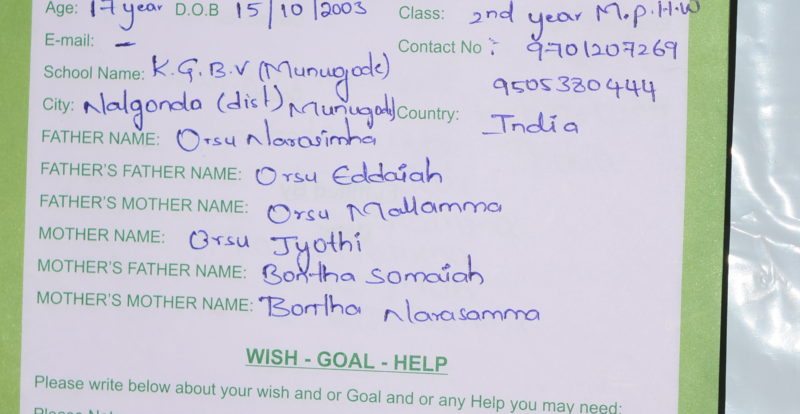 Age: 17 year D.O.B 15/10/2003 Class: 2nd year M.P.H.W
E-mail: – Contact No : 9701207269
School Name: K.G.B.V (Munugode) 9505380444
City: Nalgonda (dist) Munugode Country: India
FATHER NAME: Orsu Narasimha
FATHER'S FATHER NAME: Orsu Eddaiah
FATHER'S MOTHER NAME: Orsu Mallamma
MOTHER NAME: Orsu Jyothi
MOTHER'S FATHER NAME: Bontha Somaiah
MOTHER'S MOTHER NAME: Bontha Narasamma
WISH - GOAL - HELP
Please write below about your wish and or Goal and or any Help you may need: